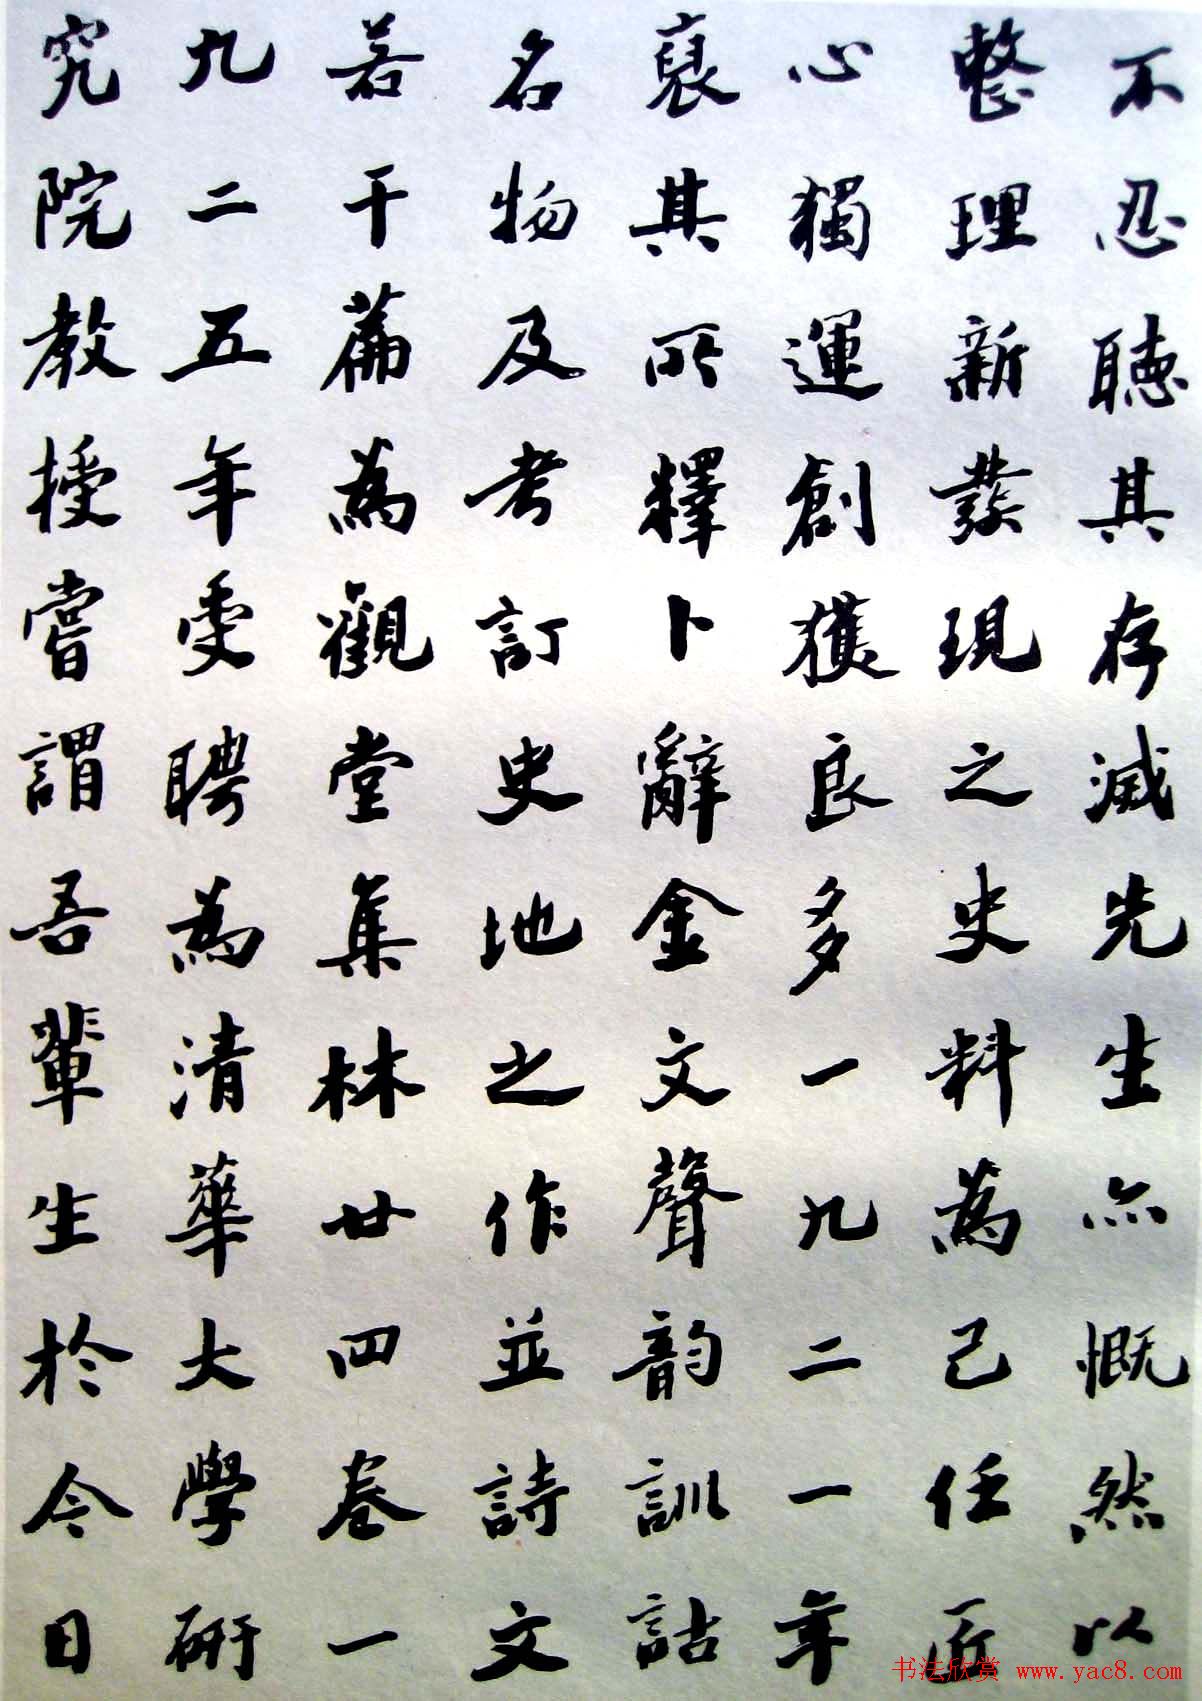 不忍聽其存滅先生亦慨然以
整理新發現之史料為己任匠
心獨運創獲良多一九二一年
裒其所釋卜辭金文聲韵訓詁
名物及考訂史地之作並詩文
若干篇為觀堂集林廿四卷一
九二五年受聘為清華大學研
究院教授嘗謂吾輩生於今日
书法欣赏 www.yac8.com